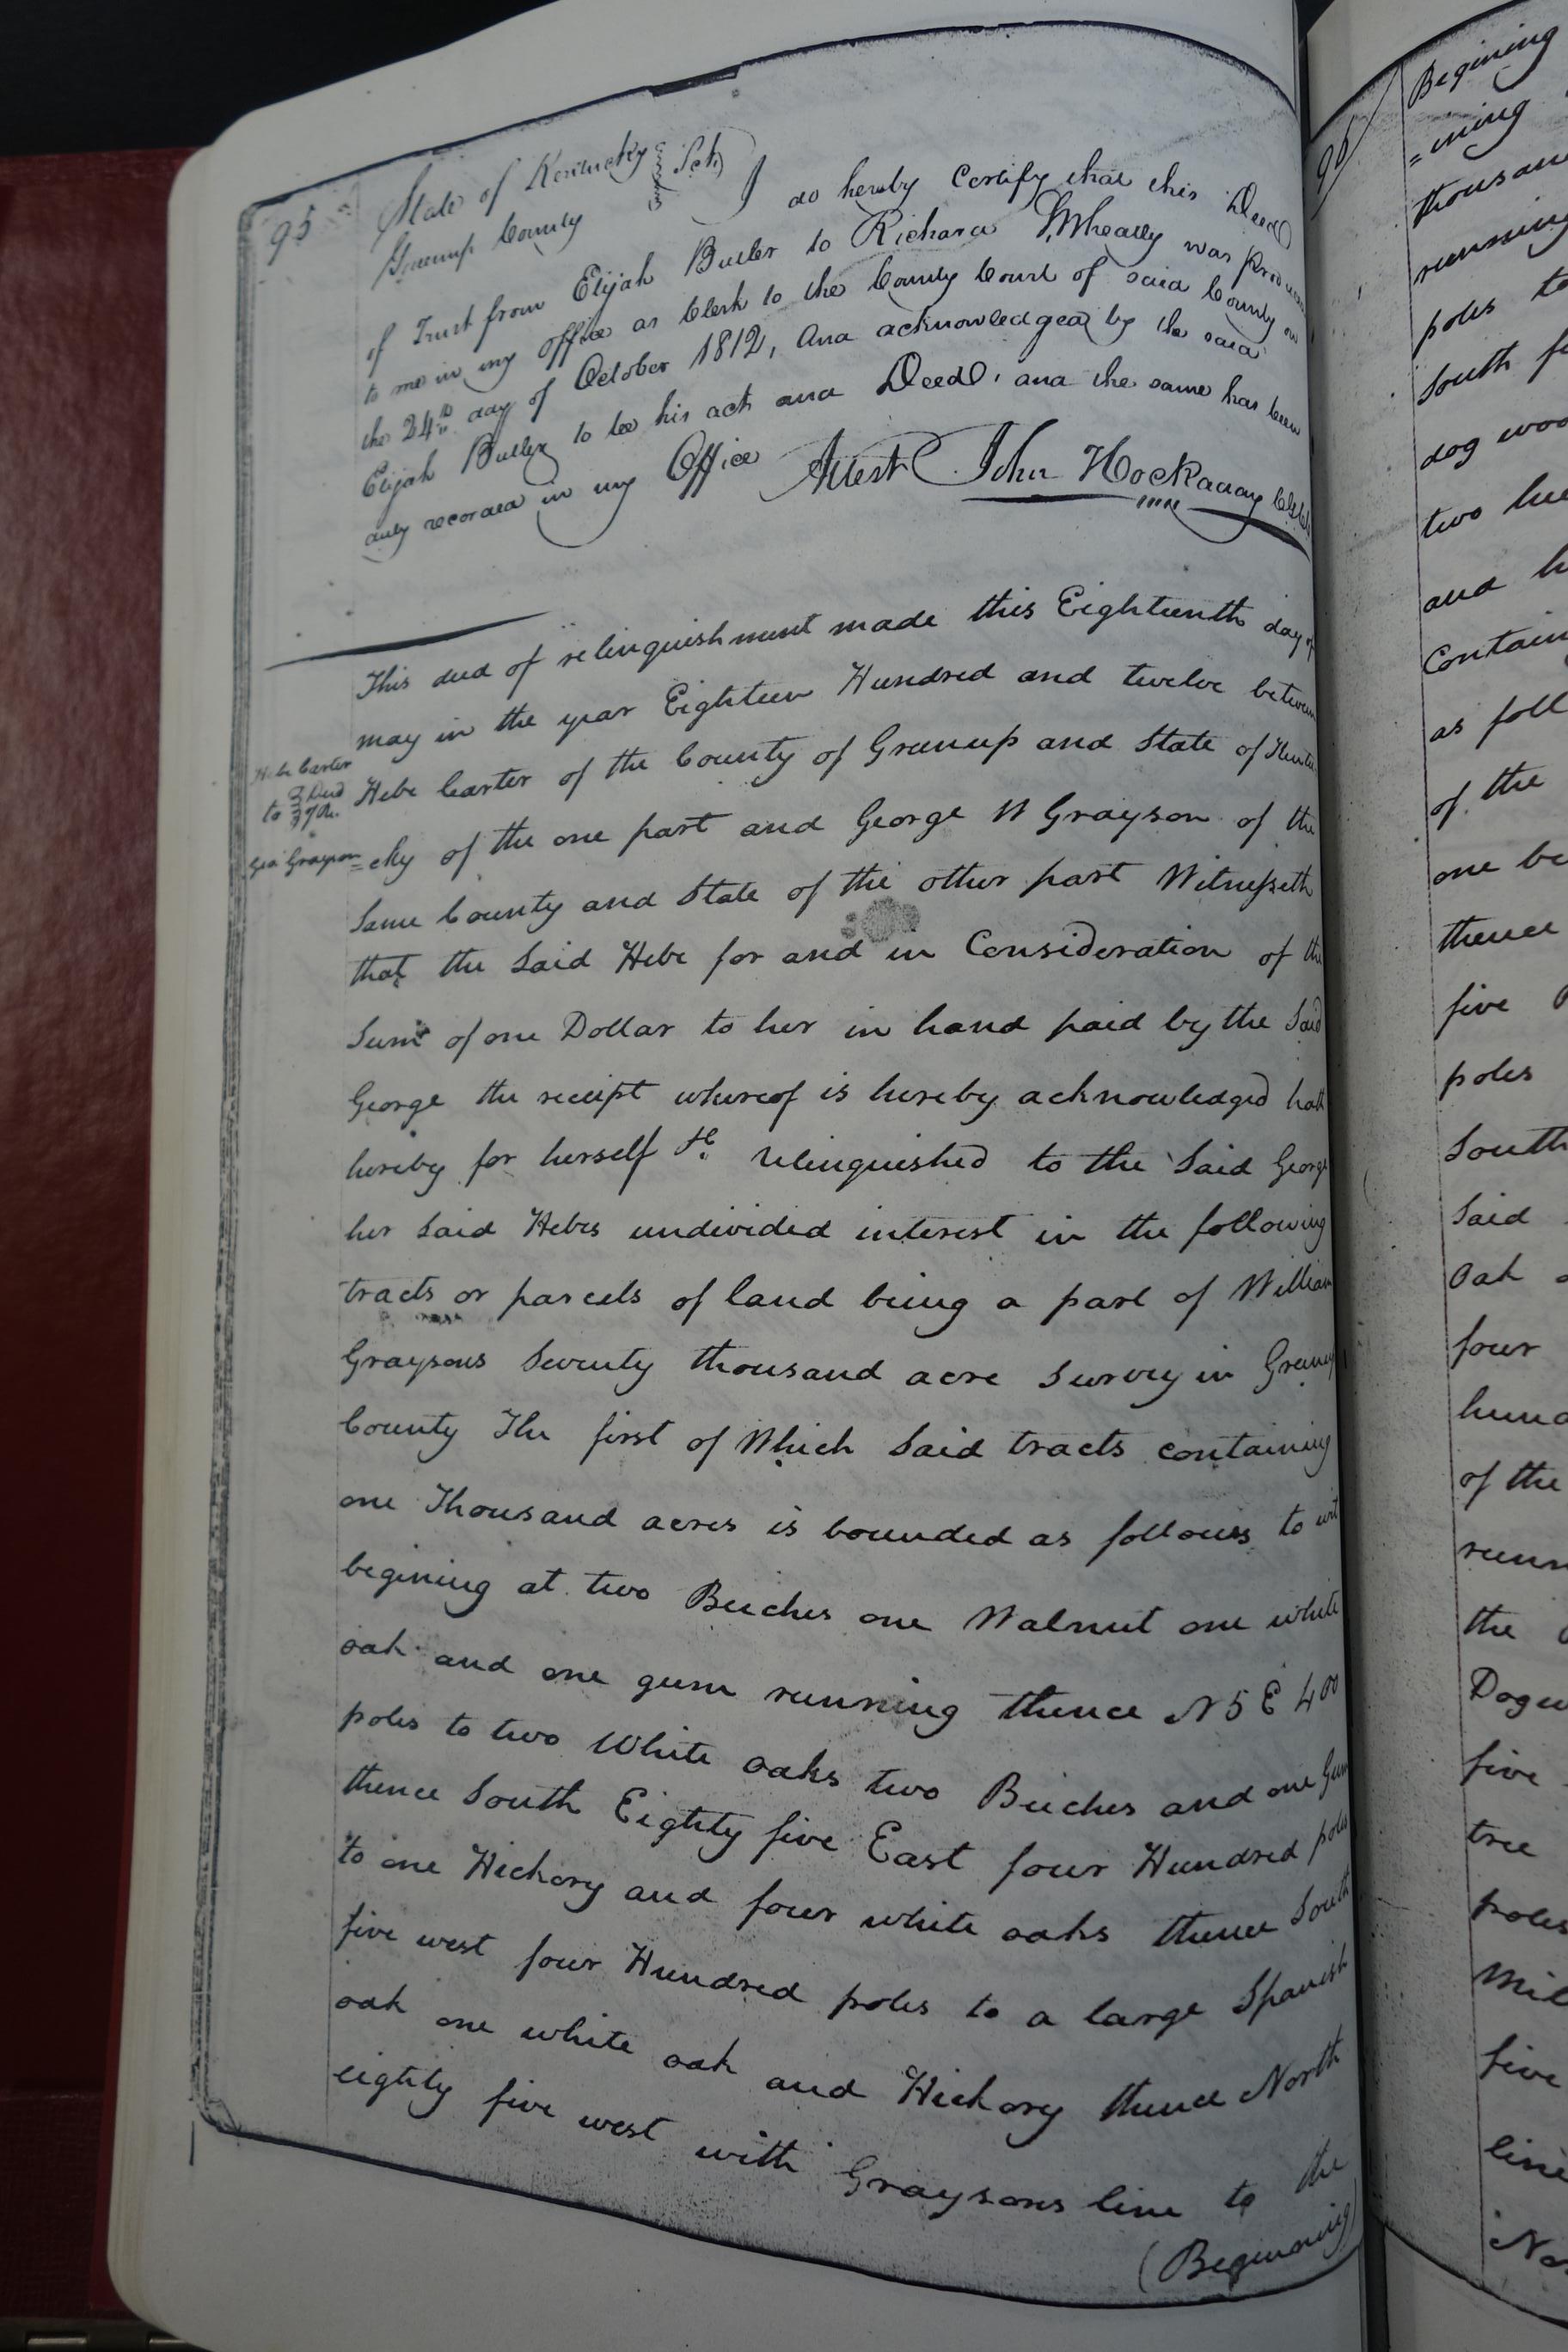 95
State of Kentucky
Greenup County } Sct
I do hereby Certify that this Deed
of Trust from Elijah Butler to Richard Wheatly was
to me in my office as Clerk to the County Court of said County on
the 24th day of October 1812, And acknowledged by the said
Elijah Butler to be his act and Deed, and the same has been
duly recorded in my Office Attest John Hockaday
This deed of relinquishment made this Eighteenth day of
may in the year Eighteen Hundred and twelve between
Hebe Carter
to } Deed
Geo Grayson
Hebe Carter of the County of Greenup and State of Kentu
=cky of the one part and George W Grayson of the
Same County and State of the other part Witnesseth
that the Said Hebe for and in Consideration of the
Sum of one Dollar to her in hand paid by the Said
George the receipt whereof is hereby acknowledged hath
hereby for herself &c. relinquished to the Said George
her Said Hebes undivided interest in the following
tracts or parcels of land being a part of William
Graysons Seventy thousand acre Survey in Greenup
County The first of Which Said tracts containing
one Thousand acres is bounded as follows to wit
begining at two Beeches one Walnut one white
oak and one gum running thence N 5 E 400
poles to two White oaks two Beeches and one Gum
thence South Eighty five East four Hundred poles
to one Hickory and four white oaks thence South
five west four Hundred poles to a large Spanish
oak one white oak and Hickory thence North
eighty five west with Graysons line to the
(Beginning)
96
Begining
=ning
thousan
running
poles to
South fi
dog woo
two hu
and h
Contain
as foll
of the
one be
thence
five
poles
South
Said
Oak
four
hund
of the
runn
the
Dogw
five
tree
poles
Mil
five
line
No